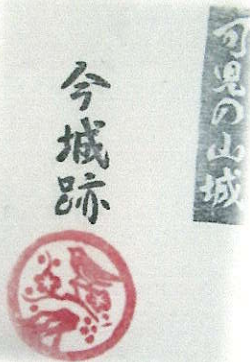 可児の山城
今城跡